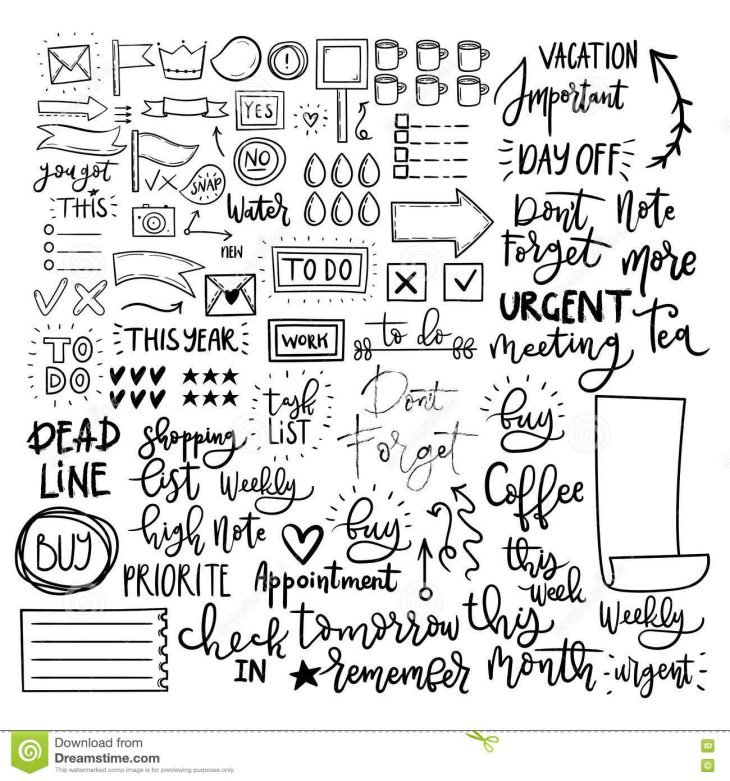 VACATION
Important
YES
DAY OFF
NO
you got
THIS
SNAP
Water
Don't
Forget
Note
more
NEW
TO DO
URGENT
meeting
Tea
THIS YEAR
WORK
to do
TO
DO
task
LIST
Don't
Forget
buy
DEAD
LINE
shopping
list
Weekly
Coffee
high Note
buy
BUY
PRIORITE
Appointment
this
week
Weekly
check
IN
tomorrow
remember
this
month
urgent
Download from
Dreamstime.com
This watermarked comp image is for previewing purposes only.
ID